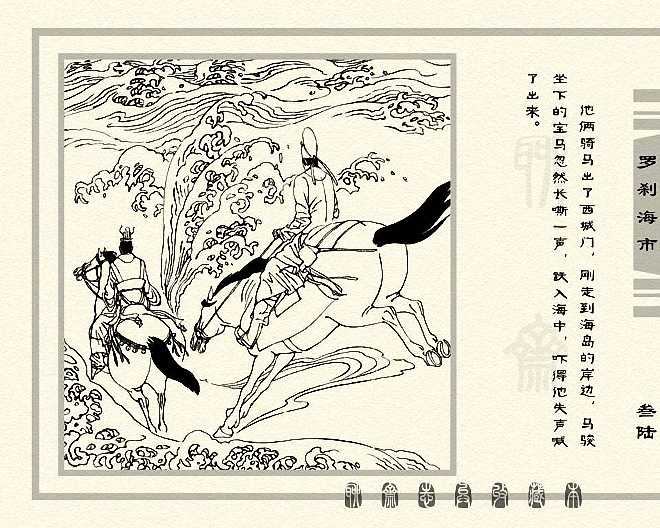 他俩骑马出了西城门，刚走到海岛的岸边，马骏
坐下的宝马忽然长嘶一声，跃入海中，吓得他失声喊
了出来。
罗刹海市
叁陆
聊斋志异收藏本
聊
斋